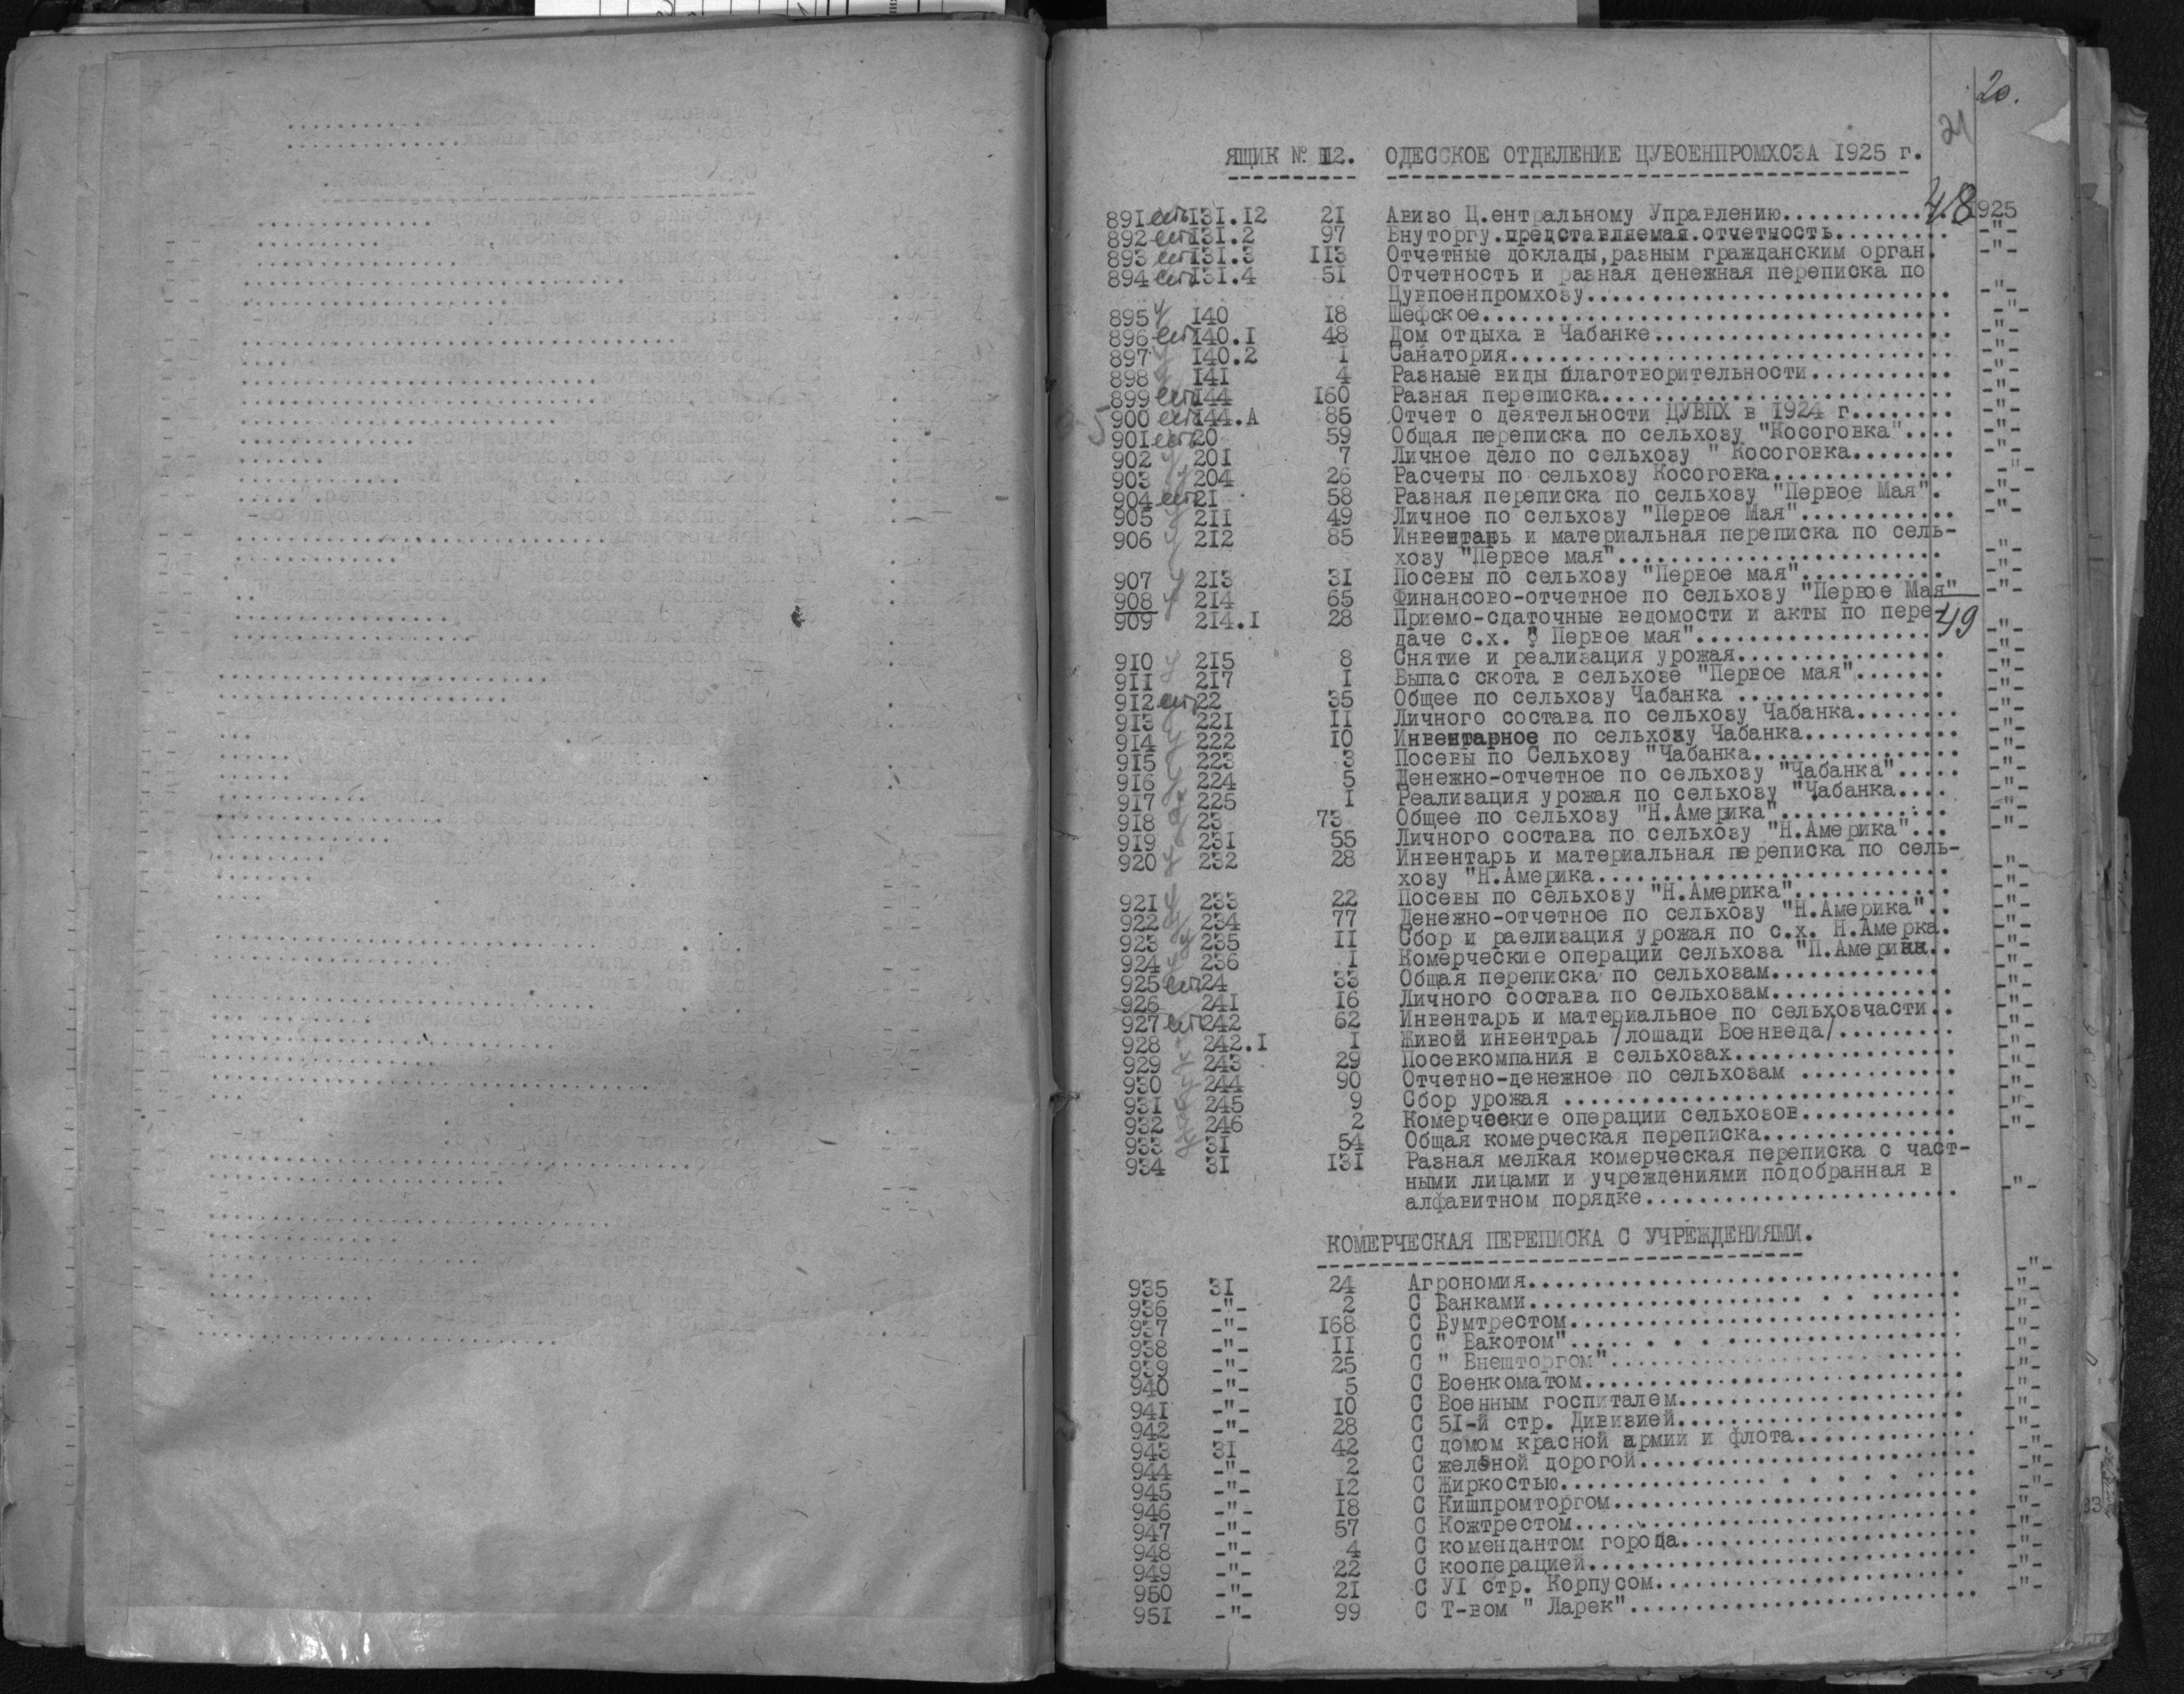 20.
21
ЯЩИК № 12. ОДЕССКОЕ ОТДЕЛЕНИЕ ЦУВОЕНПРОМХОЗА 1925 г.
48
891 есть 131.12 21 Авизо Ц.ентральному Управлению............ 1925
892 есть 131.2 97 Внуторгу.представляемая.отчетность......... -"-
893 есть 131.3 113 Отчетные доклады,разным гражданским орган. -"-
894 есть 131.4 51 Отчетность и разная денежная переписка по
Цувпоенпромхозу............................ -"-
895 у 140 18 Шефское.................................... -"-
896 есть 140.1 48 Дом отдыха в Чабанке....................... -"-
897 у 140.2 1 Санатория.................................. -"-
898 у 141 4 Разнаые виды благотворительности........... -"-
899 есть 144 160 Разная переписка........................... -"-
900 есть 144.А 85 Отчет о деятельности ЦУВПХ в 1924 г........ -"-
901 есть 20 59 Общая переписка по сельхозу "Косоговка".... -"-
902 у 201 7 Личное дело по сельхозу " Косоговка........ -"-
903 у 204 26 Расчеты по сельхозу Косоговка.............. -"-
904 есть 21 58 Разная переписка по сельхозу "Первое Мая". -"-
905 у 211 49 Личное по сельхозу "Первое Мая"............ -"-
906 у 212 85 Инвентарь и материальная переписка по сель-
хозу "Первое мая".......................... -"-
907 у 213 31 Посевы по сельхозу "Первое мая"........... -"-
908 у 214 65 Финансово-отчетное по сельхозу "Первое Мая" -"-
909 214.1 28 Приемо-сдаточные ведомости и акты по пере- 49
даче с.х. " Первое мая".................... -"-
910 у 215 8 Снятие и реализация урожая................. -"-
911 у 217 1 Выпас скота в сельхозе "Первое мая"....... -"-
912 есть 22 35 Общее по сельхозу Чабанка ................. -"-
913 у 221 11 Личного состава по сельхозу Чабанка........ -"-
914 у 222 10 Инвентарное по сельхозу Чабанка............ -"-
915 у 223 3 Посевы по Сельхозу "Чабанка................ -"-
916 у 224 5 Денежно-отчетное по сельхозу "Чабанка"..... -"-
917 у 225 1 Реализация урожая по сельхозу "Чабанка.... -"-
918 у 23 73 Общее по сельхозу "Н.Америка"............. -"-
919 у 231 55 Личного состава по сельхозу "Н.Америка"... -"-
920 у 232 28 Инвентарь и материальная переписка по сель-
хозу "Н.Америка........................... -"-
921 у 233 22 Посевы по сельхозу "Н.Америка"............ -"-
922 у 234 77 Денежно-отчетное по сельхозу "Н.Америка".. -"-
923 у 235 11 Сбор и раелизация урожая по с.х. Н.Амерка. -"-
924 у 236 1 Комерческие операции сельхоза "П.Америка.. -"-
925 есть 24 33 Общая переписка по сельхозам.............. -"-
926 241 16 Личного состава по сельхозам.............. -"-
927 есть 242 62 Инвентарь и материальное по сельхозчасти.. -"-
928 242.1 1 Живой инвентраь /лошади Военведа/......... -"-
929 у 243 29 Посевкомпания в сельхозах................. -"-
930 у 244 90 Отчетно-денежное по сельхозам ............ -"-
931 у 245 9 Сбор урожая .............................. -"-
932 у 246 2 Комерческие операции сельхозов............ -"-
933 у 31 54 Общая комерческая переписка............... -"-
934 31 131 Разная мелкая комерческая переписка с част-
ными лицами и учреждениями подобранная в
алфавитном порядке........................ -"-
КОМЕРЧЕСКАЯ ПЕРЕПИСКА С УЧРЕЖДЕНИЯМИ.
935 31 24 Агрономия................................. -"-
936 -"- 2 С Банками................................. -"-
937 -"- 168 С Бумтрестом.............................. -"-
938 -"- 11 С " Вакотом".............................. -"-
939 -"- 25 С " Внешторгом"........................... -"-
940 -"- 5 С Военкоматом............................. -"-
941 -"- 10 С Военным госпиталем...................... -"-
942 -"- 28 С 51-й стр. Дивизией...................... -"-
943 31 42 С домом красной армии и флота............. -"-
944 -"- 2 С желеной дорогой......................... -"-
945 -"- 12 С Жиркостью............................... -"-
946 -"- 18 С Кишпромторгом........................... -"-
947 -"- 57 С Кожтрестом.............................. -"-
948 -"- 4 С комендантом города...................... -"-
949 -"- 22 С кооперацией............................. -"-
950 -"- 21 С УІ стр. Корпусом........................ -"-
951 -"- 99 С Т-вом " Ларек".......................... -"-